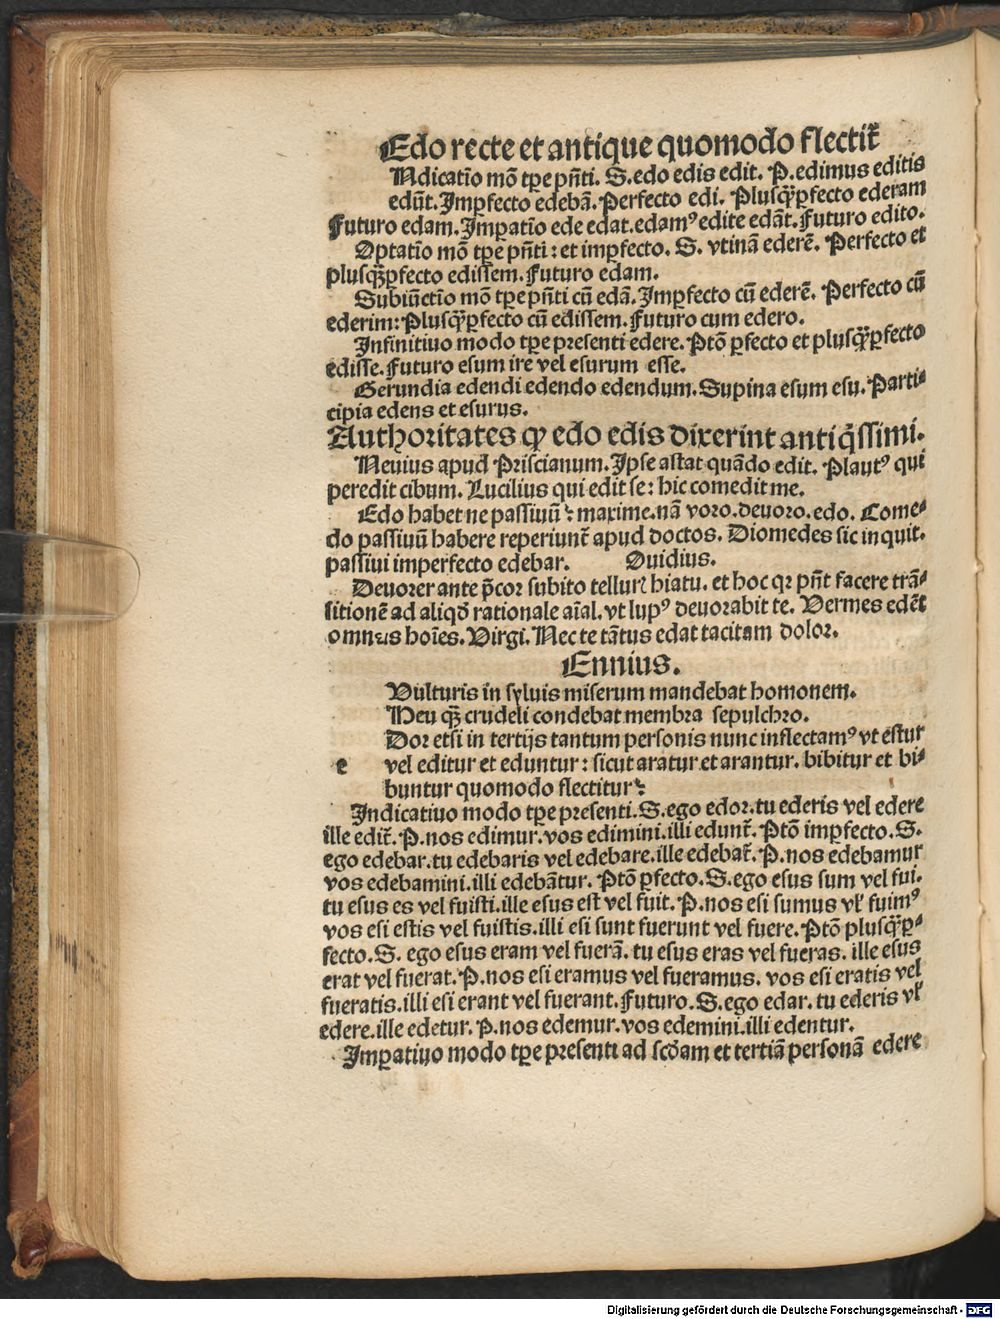 Edo recte et antique quomodo flectit᷑
Ndicatio mō tꝑe pn̄ti. S. edo edis edit. P. edimus editis
edūt. Imꝑfecto edebā. Perfecto edi. Plusqꝫꝑfecto ederam
Futuro edam. Imꝑatio ede edat. edamꝰ edite edāt. Futuro edito.
Optatio mō tꝑe pn̄ti: et imꝑfecto. S. vtinā ederē. Perfecto et
plusqꝫꝑfecto edissem. Futuro edam.
Subiūctio mō tꝑe pn̄ti cū edā. Imꝑfecto cū ederē. Perfecto cū
ederim: Plusqꝫꝑfecto cū edissem. Futuro cum edero.
Infinitiuo modo tꝑe presenti edere. Ptō ꝑfecto et plusqꝫꝑfecto
edisse. Futuro esum ire vel esurum esse.
Gerundia edendi edendo edendum. Supina esum esu. Parti⸗
cipia edens et esurus.
Authoritates ꝙ edo edis dixerint antiq̄ssimi.
Neuius apud Priscianum. Ipse astat quādo edit. Plautꝰ qui
peredit cibum. Lucilius qui edit se: hic comedit me.
Edo habet ne passiuū: maxime. nā voro. deuoro. edo. Come⸗
do passiuū habere reperiunt᷑ apud doctos. Diomedes sic inquit.
passiui imperfecto edebar. Ouidius.
Deuorer ante p̄cor subito telluris hiatu. et hoc qꝛ pn̄t facere trā⸗
sitionē ad aliqđ rationale aīal. vt lupꝰ deuorabit te. Vermes edēt
omnes hoīes. Virgi. Nec te tātus edat tacitam dolor.
Ennius.
Vulturis in syluis miserum mandebat homonem.
Heu qꝫ crudeli condebat membra sepulchro.
Dor etsi in tertijs tantum personis nunc inflectamꝰ vt estur
e vel editur et eduntur: sicut aratur et arantur. bibitur et bi⸗
buntur quomodo flectitur:
Indicatiuo modo tꝑe presenti. S. ego edor. tu ederis vel edere
ille edit᷑. P. nos edimur. vos edimini. illi edunt᷑. Ptō imꝑfecto. S.
ego edebar. tu edebaris vel edebare. ille edebat᷑. P. nos edebamur
vos edebamini. illi edebātur. Ptō ꝑfecto. S. ego esus sum vel fui.
tu esus es vel fuisti. ille esus est vel fuit. P. nos esi sumus vł fuimꝰ
vos esi estis vel fuistis. illi esi sunt fuerunt vel fuere. Ptō plusqꝫꝑ⸗
fecto. S. ego esus eram vel fuerā. tu esus eras vel fueras. ille esus
erat vel fuerat. P. nos esi eramus vel fueramus. vos esi eratis vel
fueratis. illi esi erant vel fuerant. Futuro. S. ego edar. tu ederis vł
edere. ille edetur. P. nos edemur. vos edemini. illi edentur.
Imꝑatiuo modo tꝑe presenti ad scđam et tertiā personā edere
Digitalisierung gefördert durch die Deutsche Forschungsgemeinschaft - DFG